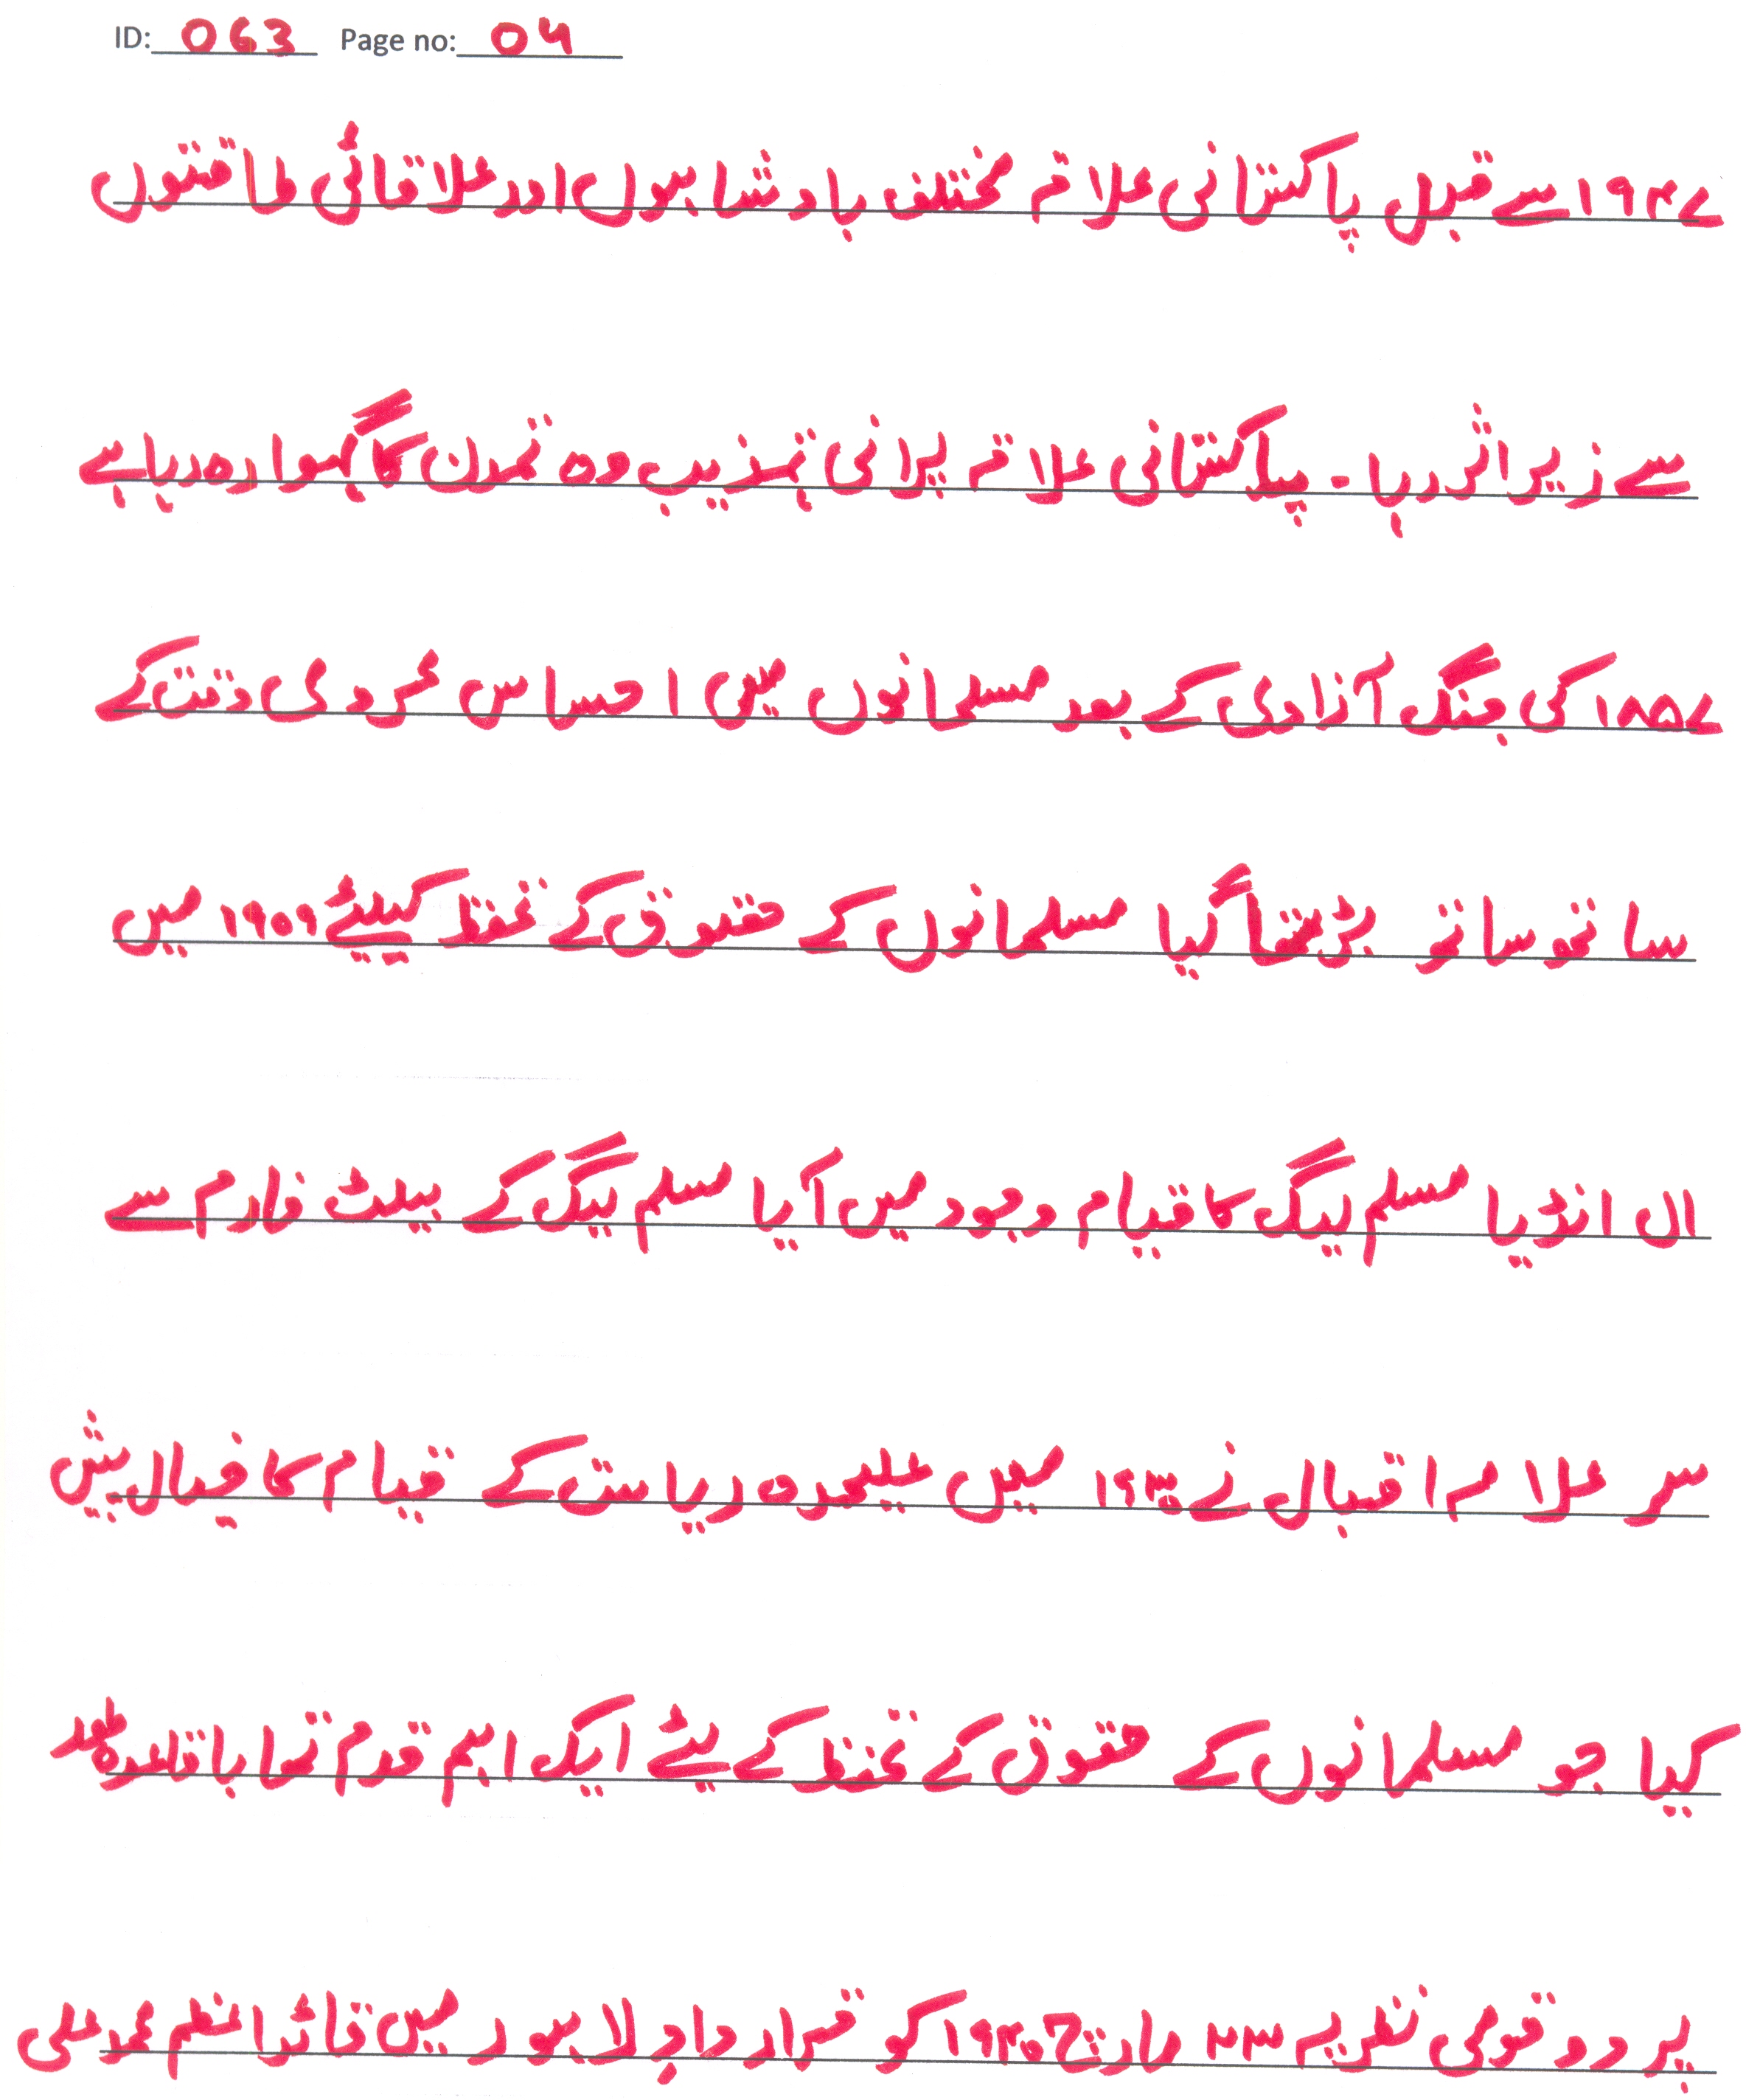 ID: 063 Page no: 04
۱۹۴۷ سے قبل پاکستانی علاقہ مختلف بادشاہوں اور علاقائی طاقتوں
سے زیر اثر رہا - پپاکستانی علاقہ پرانی تہذیب وہ تمدن کا گہوارہ رہا ہے
۱۸۵۷ کی جنگ آزادی کے بعد مسلمانوں میں احساس محرومی وقت کے
ساتھ ساتھ بڑھتا گیا مسلمانوں کے حقوق کے تحفظ کیلئے ۱۹۰۹ میں
ال انڈیا مسلم لیگ کا قیام وجود میں آیا مسلم لیگ کے پیلٹ فارم سے
سر علامہ اقبال نے ۱۹۳۰ میں علیحدہ ریاست کے قیام کا خیال پیش
کیا جو مسلمانوں کے حقوق کے تحفظ کے لئے ایک اہم قدم تھا باقاعدہ طور
پر دو قومی نظریہ ۲۳ مارچ ۱۹۴۰ کو قرارداد لاہور میں قائداعظم محمد علی